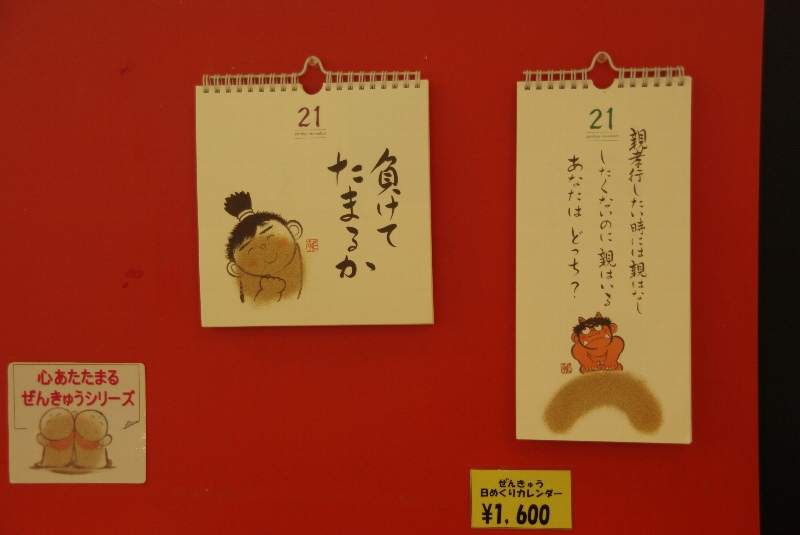 21
負けて
たまるか
21
親孝行したい時には親はなし
したくないのに親はいる
あなたは どっち？
心あたたまる
ぜんきゅうシリーズ
ぜんきゅう
日めくりカレンダー
¥1,600